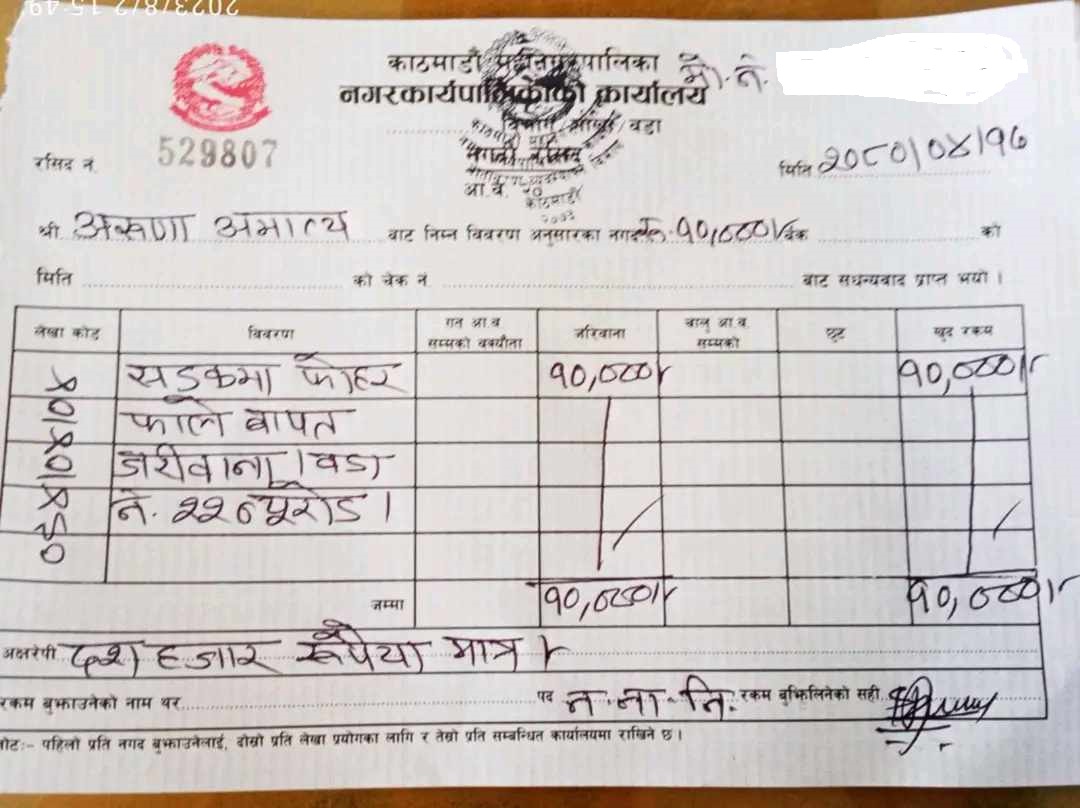 2023/8/2 15:49
काठमाडौं महानगरपालिका
मो. नं.
नगरकार्यपालिकाको कार्यालय
विभाग/शाखा/वडा
रसिद नं. 529807
नगदी रसिद
मिति २०८०।०४।१७
आ.व.
श्री अरुणा अमात्य बाट निम्न विवरण अनुसारका नगद रु. १०,०००।- चेक को
मिति को चेक नं बाट सधन्यवाद प्राप्त भयो ।
लेखा कोड विवरण गत आ.व. सम्मको बक्यौता जरिवाना चालु आ.व. सम्मको छुट खुद रकम
सडकमा फोहर १०,०००।- १०,०००।-
फाले बापत
जरीवाना । वडा
नं. २२ न्यूरोड ।
जम्मा १०,०००।- १०,०००।-
अक्षरेपी दश हजार रूपैया मात्र ।-
रकम बुझाउनेको नाम थर पद न.ना.नि. रकम बुझिलिनेको सही
नोट:- पहिलो प्रति नगद बुझाउनेलाई, दोस्रो प्रति लेखा प्रयोगका लागि र तेस्रो प्रति सम्बन्धित कार्यालयमा राखिने छ ।